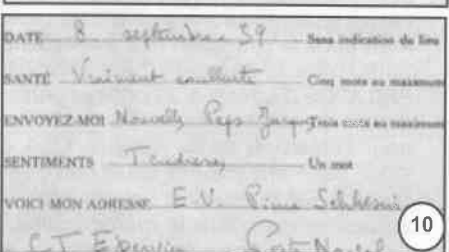 DATE 8 septembre 39 Sans indication de lieu
SANTÉ Vraiment excellente Cinq mots au maximum
ENVOYEZ-MOI Nouvelles Papa Jacques Trois mots au maximum
SENTIMENTS Tendresses Un mot
VOICI MON ADRESSE E.V. Pierre
C.T. Poste Navale
10